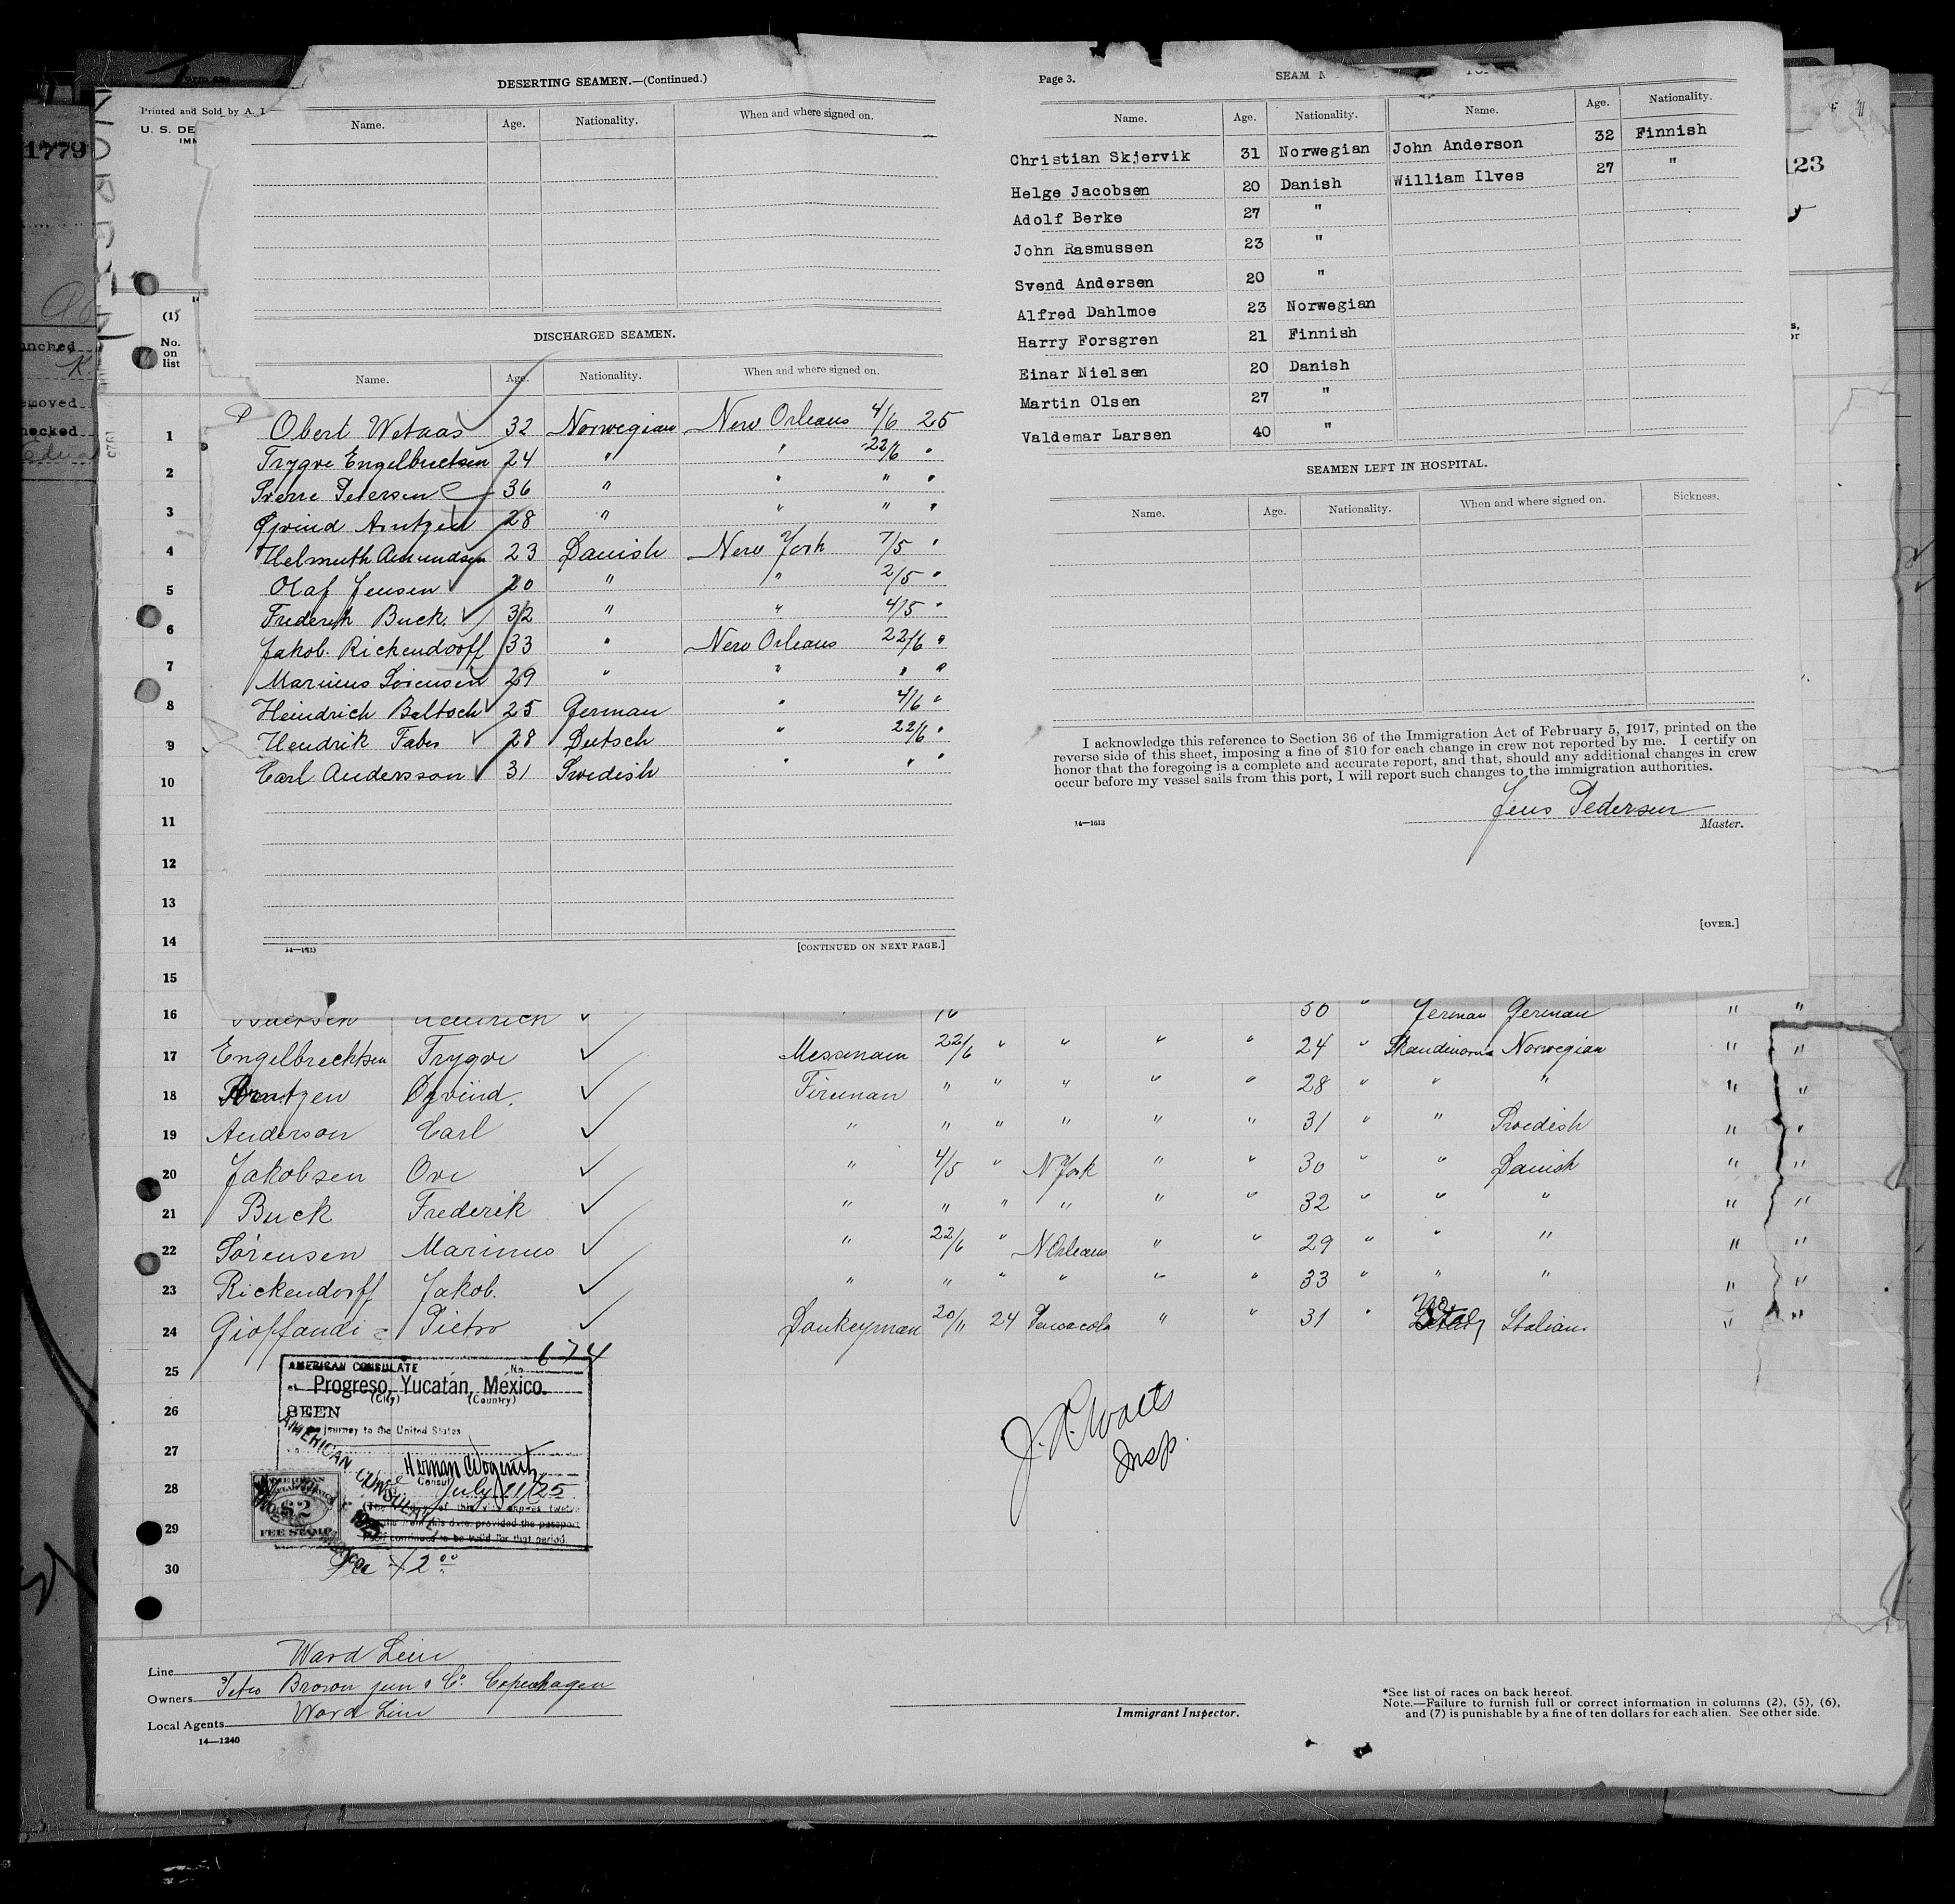 Printed and Sold by A. I
U. S. DE
1779
123
DESERTING SEAMEN.—(Continued.)
Name. Age. Nationality. When and where signed on.
DISCHARGED SEAMEN.
Name. Age. Nationality. When and where signed on.
Obert Wetaas 32 Norwegian New Orleans 4/6 25
Trygve Engelbrechtsen 24 " " 22/6 "
Sverre Petersen 36 " " " "
Øjvind Arntzen 28 " " " "
Helmuth Amundsen 23 Danish New York 7/5 "
Olaf Jensen 20 " " 2/5 "
Frederik Buck. 32 " " 4/5 "
Jakob. Rickendorff 33 " New Orleans 22/6 "
Marinus Sörensen 29 " " " "
Heindrich Baltsch 25 German " 4/6 "
Hendrik Faber 28 Dutsch " 22/6 "
Carl Andersson 31 Swedish " " "
14—1613 [CONTINUED ON NEXT PAGE.]
Page 3. SEAM
Name. Age. Nationality. Name. Age. Nationality.
Christian Skjervik 31 Norwegian John Anderson 32 Finnish
Helge Jacobsen 20 Danish William Ilves 27 "
Adolf Berke 27 "
John Rasmussen 23 "
Svend Andersen 20 "
Alfred Dahlmoe 23 Norwegian
Harry Forsgren 21 Finnish
Einar Nielsen 20 Danish
Martin Olsen 27 "
Valdemar Larsen 40 "
SEAMEN LEFT IN HOSPITAL.
Name. Age. Nationality. When and where signed on. Sickness.
I acknowledge this reference to Section 36 of the Immigration Act of February 5, 1917, printed on the
reverse side of this sheet, imposing a fine of $10 for each change in crew not reported by me. I certify on
honor that the foregoing is a complete and accurate report, and that, should any additional changes in crew
occur before my vessel sails from this port, I will report such changes to the immigration authorities.
Jens Pedersen
14—1613 Master.
[OVER.]
(1)
No.
on
list
1
2
3
4
5
6
7
8
9
10
11
12
13
14
15
16 30 " German German " "
17 Engelbrechtsen Trygve Messman 22/6 " " " " 24 " Skandinavia Norwegian " "
18 Arntzen Øjvind. Fireman " " " " " 28 " " " " "
19 Anderson Carl " " " " " " 31 " " Swedish " "
20 Jakobsen Ove " 4/5 " N York " " 30 " " Danish " "
21 Buck Frederik " " " " " " 32 " " " " "
22 Sörensen Marinus " 22/6 " N Orleans " " 29 " " " " "
23 Rickendorff Jakob. " " " " " " 33 " " " " "
24 Gioffandi Pietro Donkeyman 20/11 24 Pensacola " " 31 " Italian " "
25
26
27
28
29
30
AMERICAN CONSULATE No. 674
at Progreso, Yucatán, México.
(City) (Country)
SEEN
journey to the United States
Consul
July 11/25
AMERICAN CONSULATE
$2
FEE STAMP
from this date, provided the passport
continued to be valid for that period.
Fee $2.00
Insp.
Line Ward Line
Owners Peter Brown jun & Co. Copenhagen
Local Agents Ward Line
14—1240
Immigrant Inspector.
*See list of races on back hereof.
Note.—Failure to furnish full or correct information in columns (2), (5), (6),
and (7) is punishable by a fine of ten dollars for each alien. See other side.